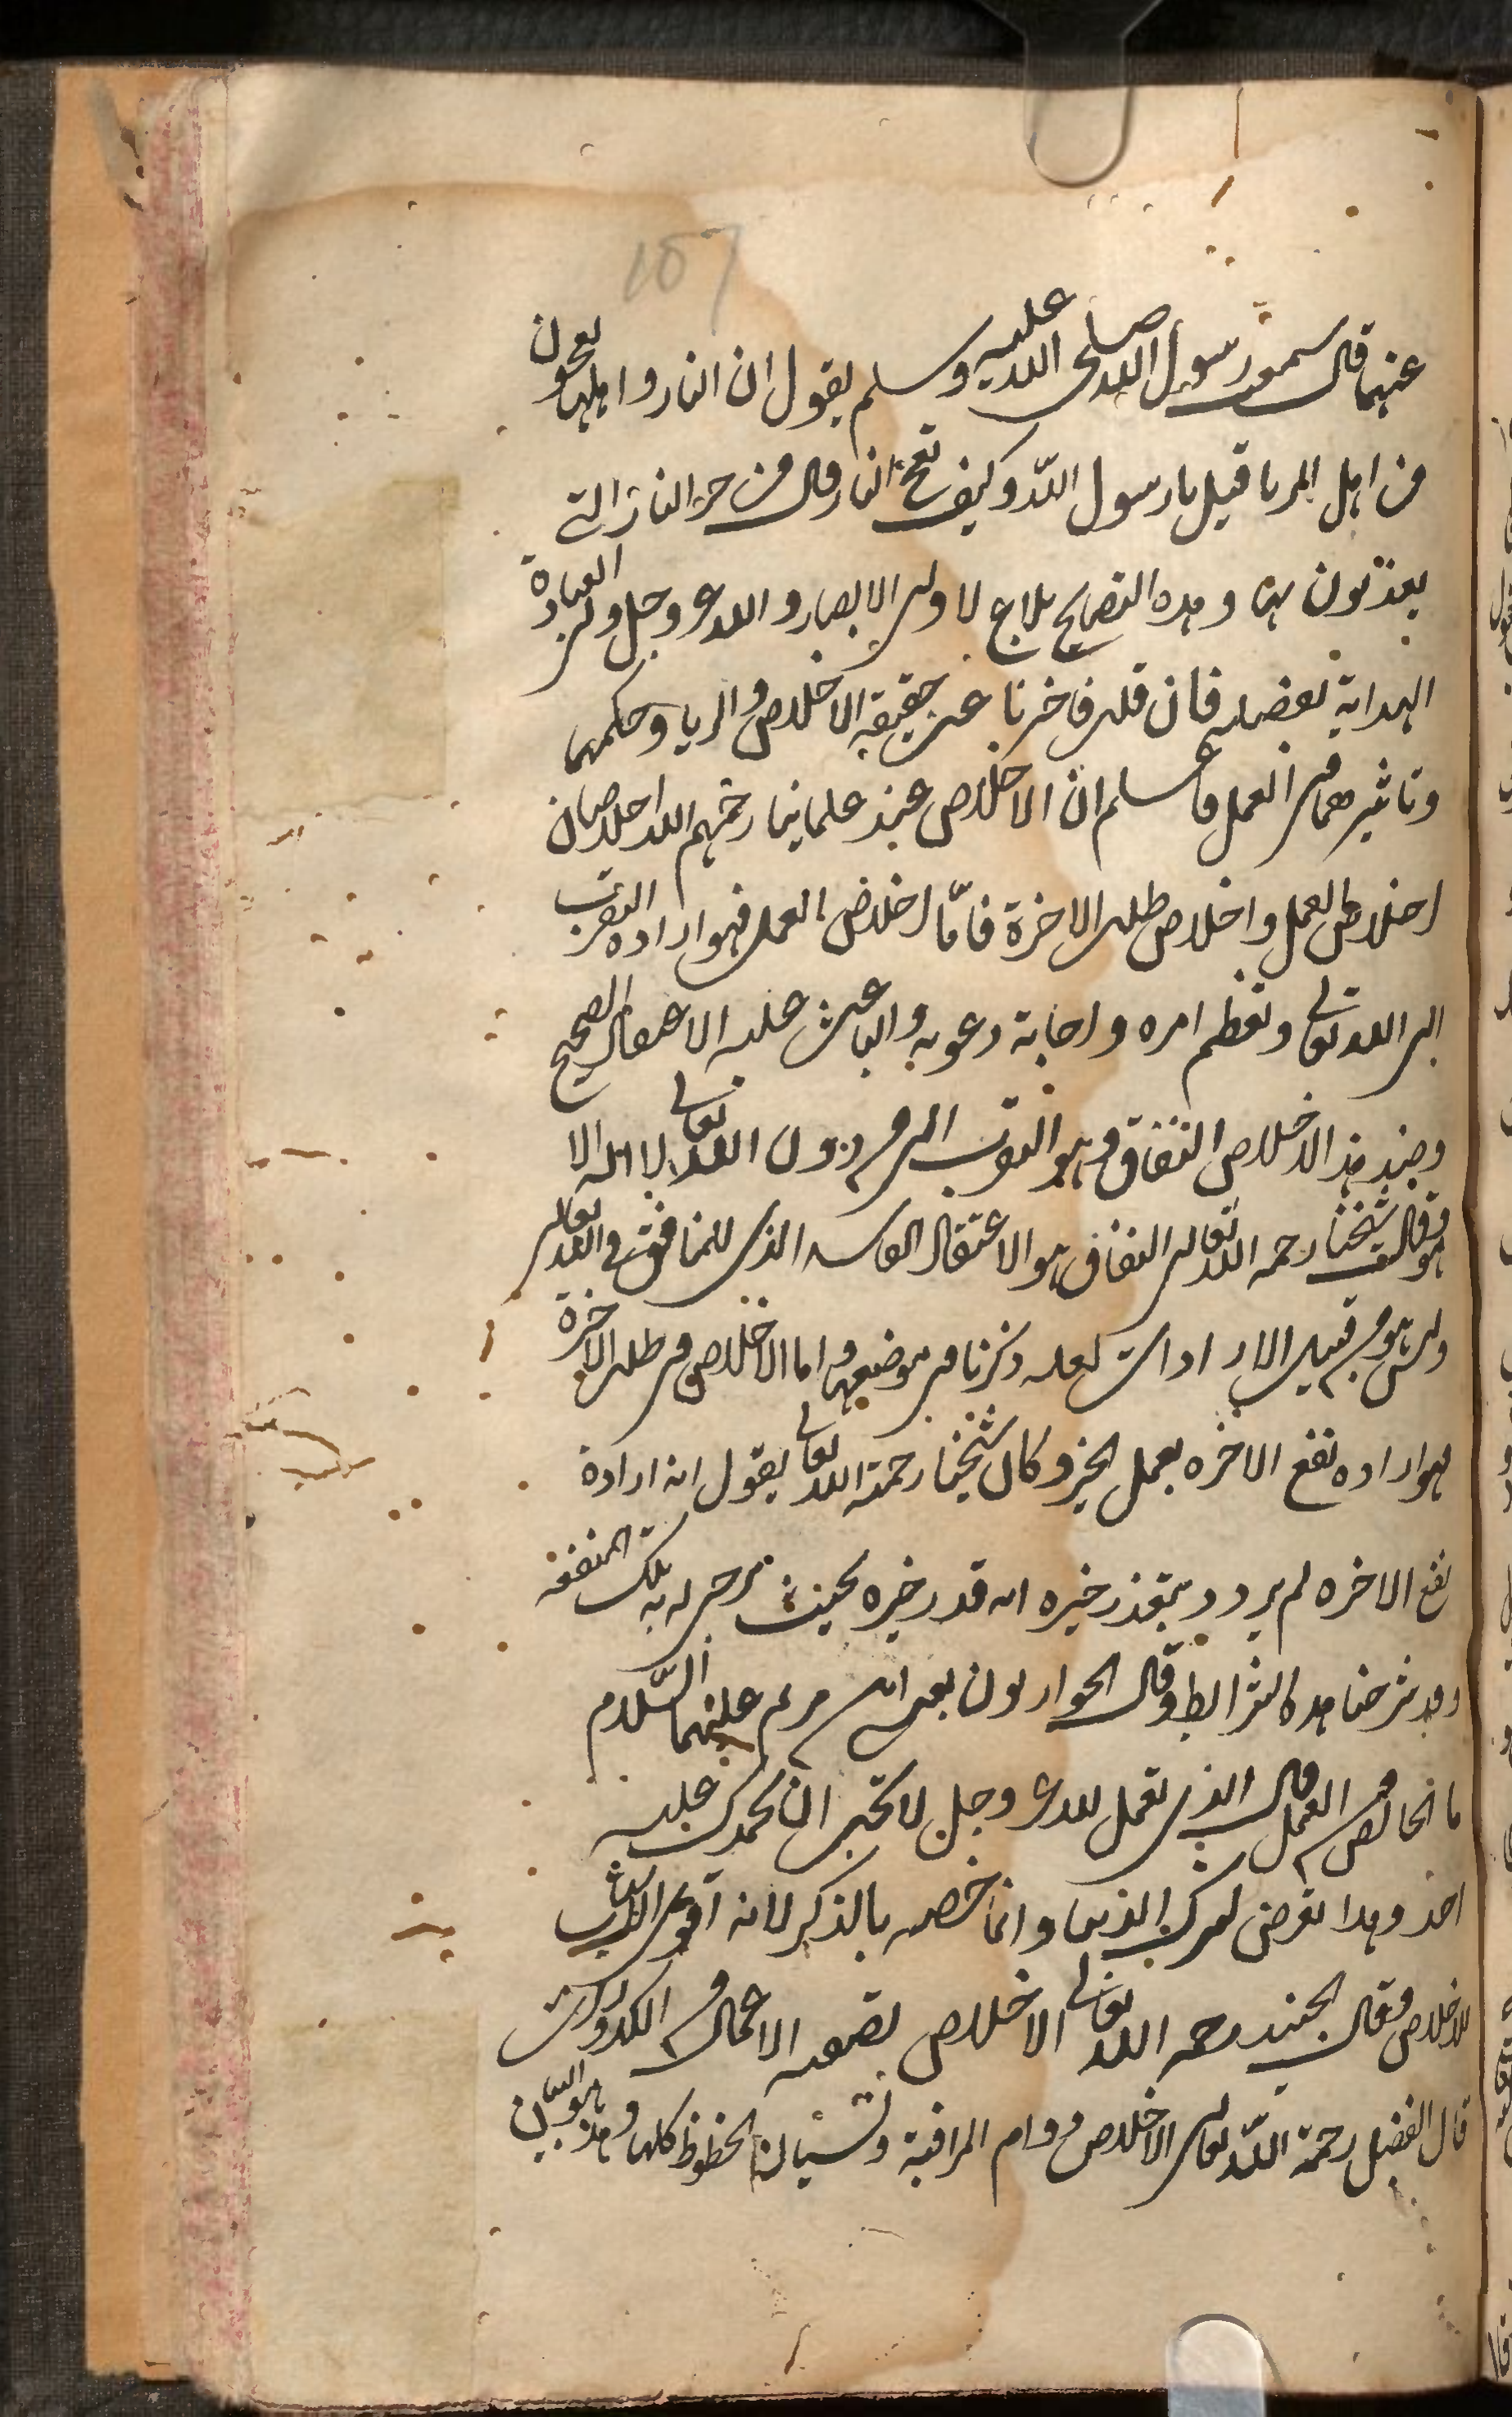 107
عنهما قال سمعت رسول الله صلى الله عليه وسلم يقول ان النار واهلها يعجون
من اهل الريا قيل يا رسول الله وكيف تعج النار قال من حر النار التي
يعذبون بها و هذه الفضايح بلاغ لاولى الابصار والله عز وجل ولى العبادة
الهداية بفضله فان قلت فاخبرنا عن حقيقة الاخلاص والريا وحكمهما
وتاثيرهما فى العمل فاعلم ان الاخلاص عند علماينا رحمهم الله اخلاصان
اخلاص العمل واخلاص طلب الاخرة فامّا اخلاص العمل فهو ارادة التقرب
الى الله تعالى وتعظيم امره واجابة دعوته والباعث عليه الاعتقاد الصحيح
وضد هذا الاخلاص النفاق وهو التقرب الى من دون الله تعالى لا اله الا
هو وقال شيخنا رحمه الله تعالى النفاق هو الاعتقاد الفاسد الذى للمنافق فى الله تعالى
وليس هو من قبيل الارادات لعلة ذكرنا فى موضعها واما الاخلاص فى طلب الاخرة
فهو ارادة نفع الاخرة بعمل الخير وكان شيخنا رحمة الله تعالى يقول انه ارادة
نفع الاخرة لم يرد رد يتعذر خيره انه قدر خيره بحيث يرجى له به تلك المنفعة
وقد شرحنا هذه الشرايط وقال الحواريون لعيسى ابن مريم عليهما السلام
ما الخالص من العمل قال الذى يعمل لله عز وجل لا يحب ان يحمده عليه
احد وهذا تعرض لترك الريا وانما خصه بالذكر لانه اقوى الاسباب
للاخلاص وقال الجنيد رحمه الله تعالى الاخلاص تصفية الاعمال من الكدورات
قال الفضيل رحمة الله تعالى الاخلاص دوام المراقبة ونسيان الحظوظ كلها وهذا هو البيان